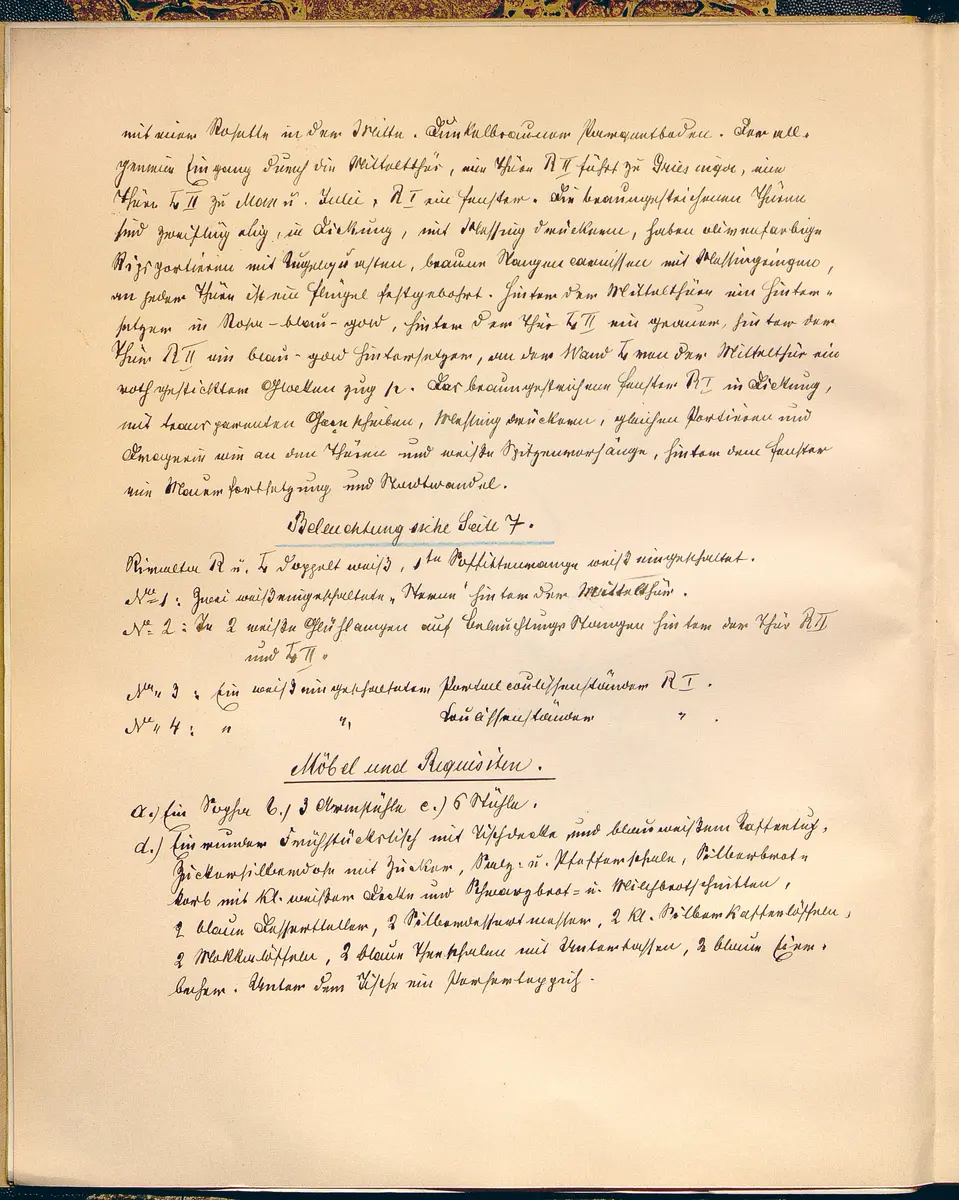 mit einer Rosette in der Mitte. Dunkelbrauner Parquetboden. Der all-
gemeine Eingang durch die Mittelthür, eine Thüre R II führt zu Driesinger, eine
Thüre L II zu Max u. Julie, R I ein Fenster. Die braungestrichenen Thüren
sind zweiflüg elig, in Dickung, mit Messing drückern, haben olivenfarbige
Ripsportieren mit Kugelquasten, braune Stangen carnissen mit Messingringen,
an jeder Thüre ist ein Flügel festgebohrt. Hinter der Mittelthüre ein Hinter-
setzer in Rosa-blau-gold, hinter der Thür L II ein grauer, hinter der
Thür R II ein blau-gold Hintersetzer, an der Wand L von der Mittelthür ein
roth gestickter Glocken zug p. Das braungestrichene Fenster R I in Dickung,
mit transparenten Glasscheiben, Messing drückern, gleichen Portieren und
Draperie wie an den Thüren und weiße Spitzenvorhänge, hinter dem Fenster
eine Mauerfortsetzung und Stadtwandel.
Beleuchtung siehe Seite 7.
Rivalta R u. L doppelt weiß, 1te Soffittenrampe weiß eingeschaltet.
No 1: Zwei weißeingeschaltete "Sterne" hinter der Mittelthür.
No 2: Je 2 weiße Glühlampen auf Beleuchtungs Stangen hinter der Thür R II
und L II.
No 3: Ein weiß eingeschalteter Portalcoulissenständer R I.
No 4: " " Coulissenständer " .
Möbel und Requisiten.
a.) Ein Sopha b.) 3 Armstühle c.) 6 Stühle.
d.) Ein runder Frühstückstisch mit Tischdecke und blauweißem Kaffeetuch,
Zuckersilberdose mit Zucker, Salz- u. Pfefferschale, Silberbrot-
korb mit kl. weißer Decke und Schwarzbrot- u. Milchbrotschnitten,
2 blaue Dessertteller, 2 Silberdessertmesser, 2 kl. Silber Kaffeelöffeln,
2 Mokkalöffeln, 2 blaue Theeschalen mit Untertassen, 2 blaue Eier-
becher. Unter dem Tische ein Persertappich.